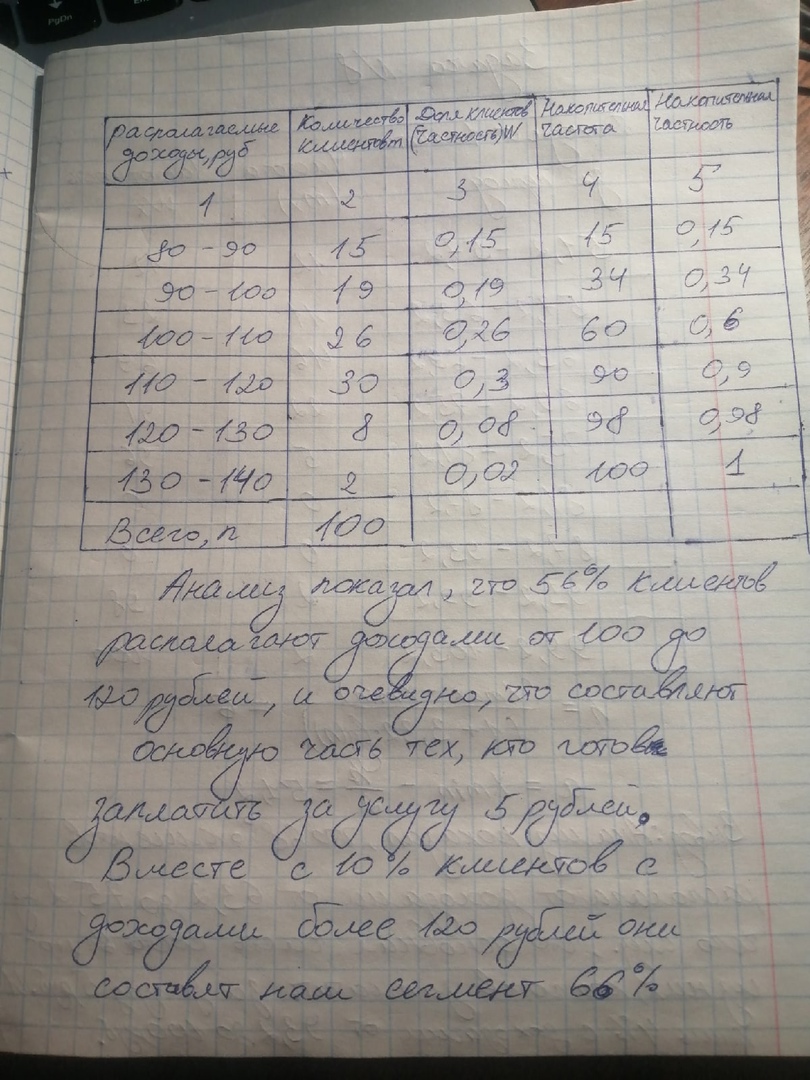 Располагаемые доходы, руб | Количество клиентов m | Доля клиентов (частность) W | Накопительная частота | Накопительная частность
1 | 2 | 3 | 4 | 5
80 - 90 | 15 | 0,15 | 15 | 0,15
90 - 100 | 19 | 0,19 | 34 | 0,34
100 - 110 | 26 | 0,26 | 60 | 0,6
110 - 120 | 30 | 0,3 | 90 | 0,9
120 - 130 | 8 | 0,08 | 98 | 0,98
130 - 140 | 2 | 0,02 | 100 | 1
Всего, n | 100
Анализ показал, что 56% клиентов
располагают доходами от 100 до
120 рублей, и очевидно, что составляют
основную часть тех, кто готов
заплатить за услугу 5 рублей.
Вместе с 10% клиентов с
доходами более 120 рублей они
составят наш сегмент 66%